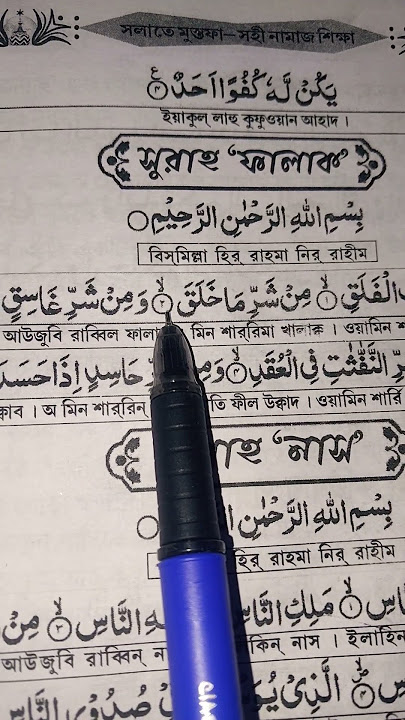 সলাতে মুস্তফা—সহী নামাজ শিক্ষা
يَكُنْ لَّهٗ كُفُوًا اَحَدٌ ۝٤
ইয়াকুল্ লাহু কুফুওয়ান আহাদ ।
সুরাহ ‘ফালাক’
بِسْمِ اللهِ الرَّحْمٰنِ الرَّحِيْمِ ۝
বিস্‌মিল্লা হির্ রাহমা নির্ রাহীম
الْفَلَقِ ۝١ مِنْ شَرِّ مَا خَلَقَ ۝٢ وَمِنْ شَرِّ غَاسِقٍ
আউজুবি রাব্বিল ফালা মিন শার্‌রিমা খালাক্ব । ওয়ামিন শ
النَّفّٰثٰتِ فِى الْعُقَدِ ۝٤ وَمِ حَاسِدٍ اِذَا حَسَدَ
ক্বাব । অ মিন শার্‌রিন্ তি ফীল উক্বাদ । ওয়ামিন শার্রি
হ ‘নাস’
بِسْمِ اللهِ الرَّحْمٰنِ ۝
হির্ রাহমা নির্ রাহীম
۝١ مَلِكِ النَّاسِ النَّاسِ ۝٣ مِنْ
আউজুবি রাব্বিন্ ন কিন্ নাস । ইলাহিন
الَّذِىْ يُوَ صُدُوْرِ النَّاسِ